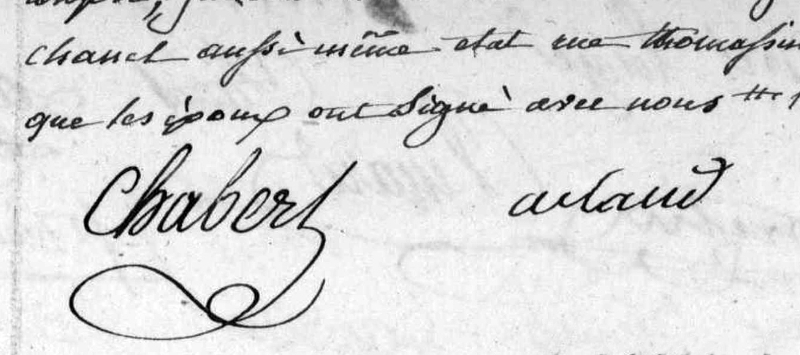 chanel aussi même état rue thomassin
que les époux ont signé avec nous
Chabert artaud